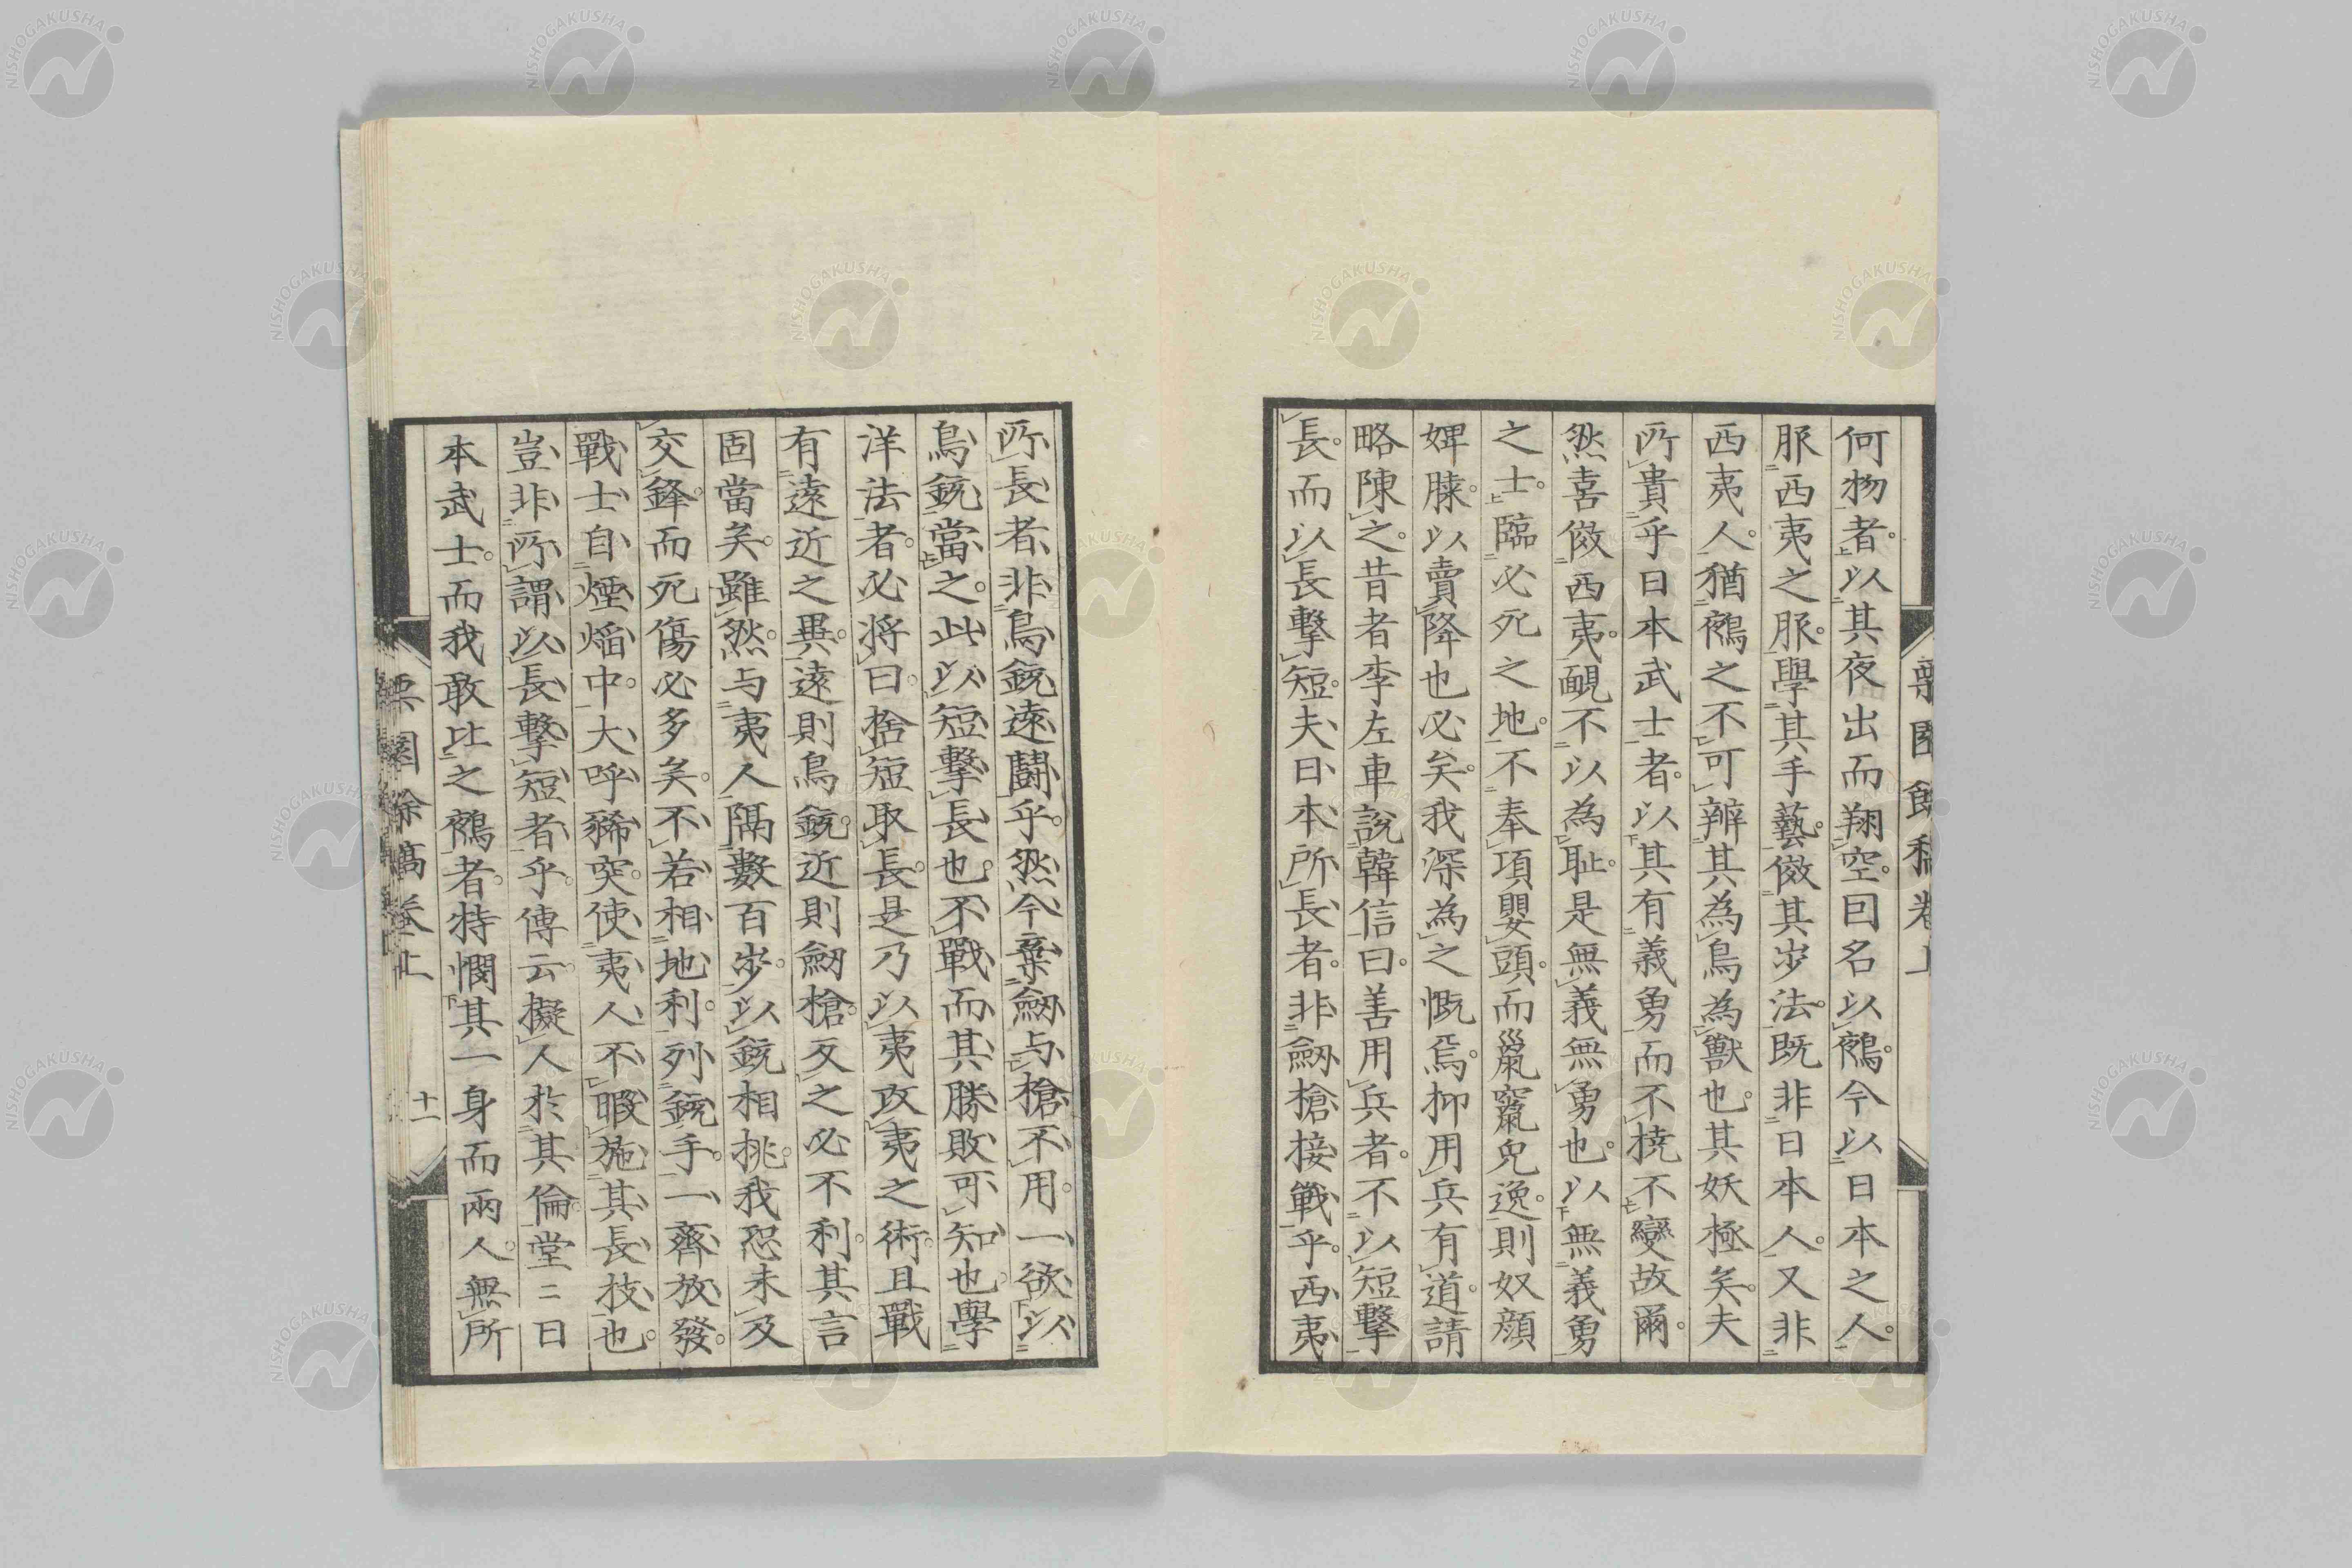 何物者以其夜出而翔空因名以鵺今以日本之人
服西夷之服學其手藝傚其步法既非日本人又非
西夷人猶鵺之不可辨其為鳥為獸也其妖極矣夫
所貴乎日本武士者以其有義勇而不撓不變故爾
然喜傚西夷靦不以為恥是無義無勇也以無義勇
之士臨必死之地不奉項嬰頭而鼠竄兔逸則奴顔
婢膝以賣降也必矣我深為之慨焉抑用兵有道請
略陳之昔者李左車說韓信曰善用兵者不以短擊
長而以長擊短夫日本所長者非劒槍接戰乎西夷
所長者非鳥銃遠鬪乎然今棄劒与槍不用一欲以
鳥銃當之此以短擊長也不戰而其勝敗可知也學
洋法者必将曰捨短取長是乃以夷攻夷之術且戰
有遠近之異遠則鳥銃近則劒槍反之必不利其言
固當矣雖然与夷人隔數百步以銃相挑我恐未及
交鋒而死傷必多矣不若相地利列銃手一齊放發
戰士自煙焰中大呼豨突使夷人不暇施其長技也
豈非所謂以長擊短者乎傳云擬人於其倫堂二日
本武士而我敢比之鵺者特憫其一身而兩人無所
栗園餘稿卷上
十一
NISHOGAKUSHA